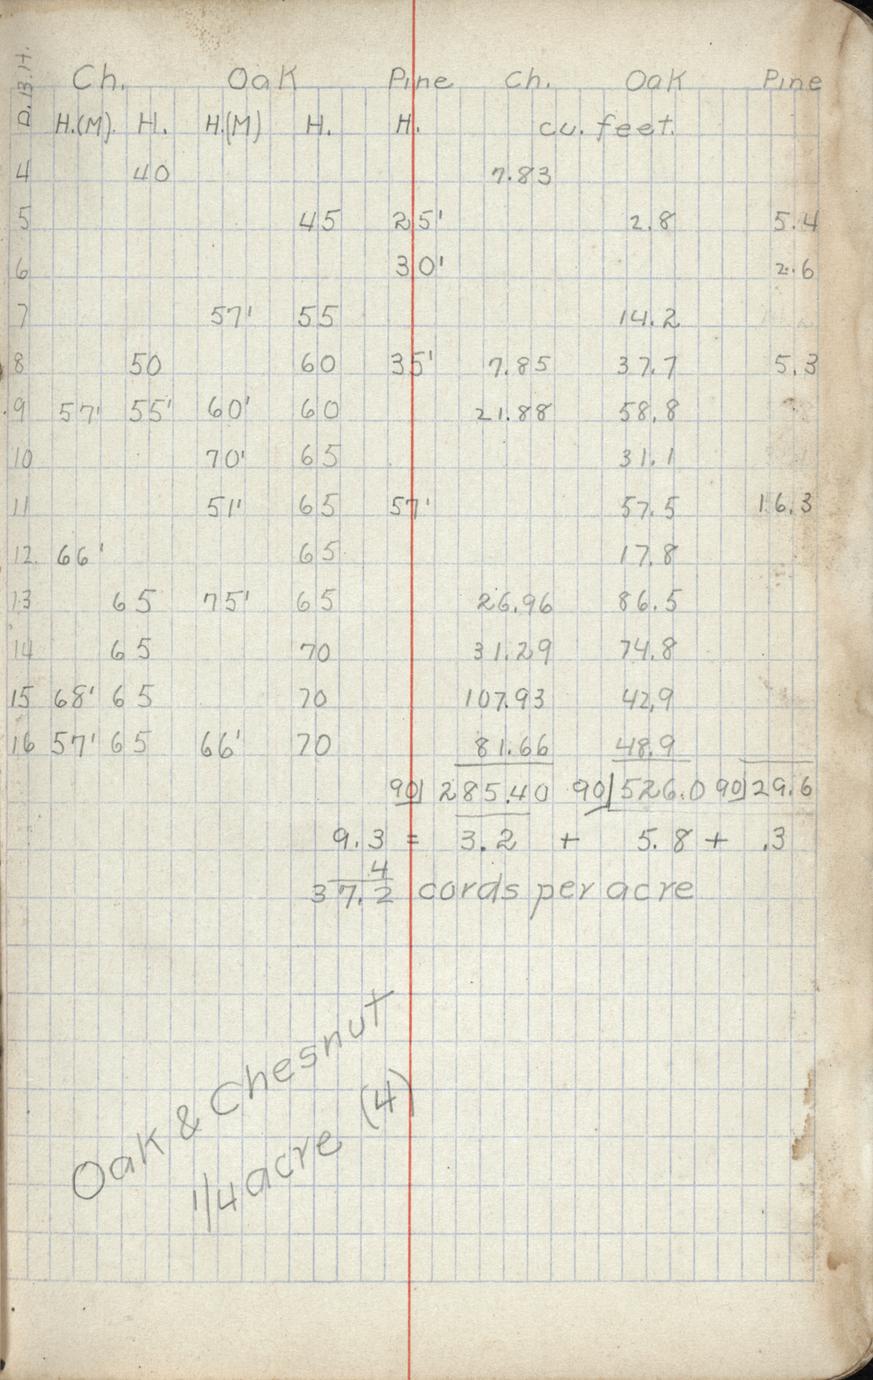 Ch. Oak Pine Ch. Oak Pine
D.B.H. H.(M). H. H.(M) H. H. cu. feet.
4 40 7.83
5 45 25' 2.8 5.4
6 30' 2.6
7 57' 55 14.2
8 50 60 35' 7.85 37.7 5.3
9 57' 55' 60' 60 21.88 58.8
10 70' 65 31.1
11 51' 65 57' 57.5 16.3
12. 66' 65 17.8
13 65 75' 65 26.96 86.5
14 65 70 31.29 74.8
15 68' 65 70 107.93 42,9
16 57' 65 66' 70 81.66 48.9
90) 285.40 90) 526.0 90) 29.6
9.3 = 3.2 + 5.8 + .3
4
37.2 cords per acre
Oak & Chesnut
1/4 acre (4)